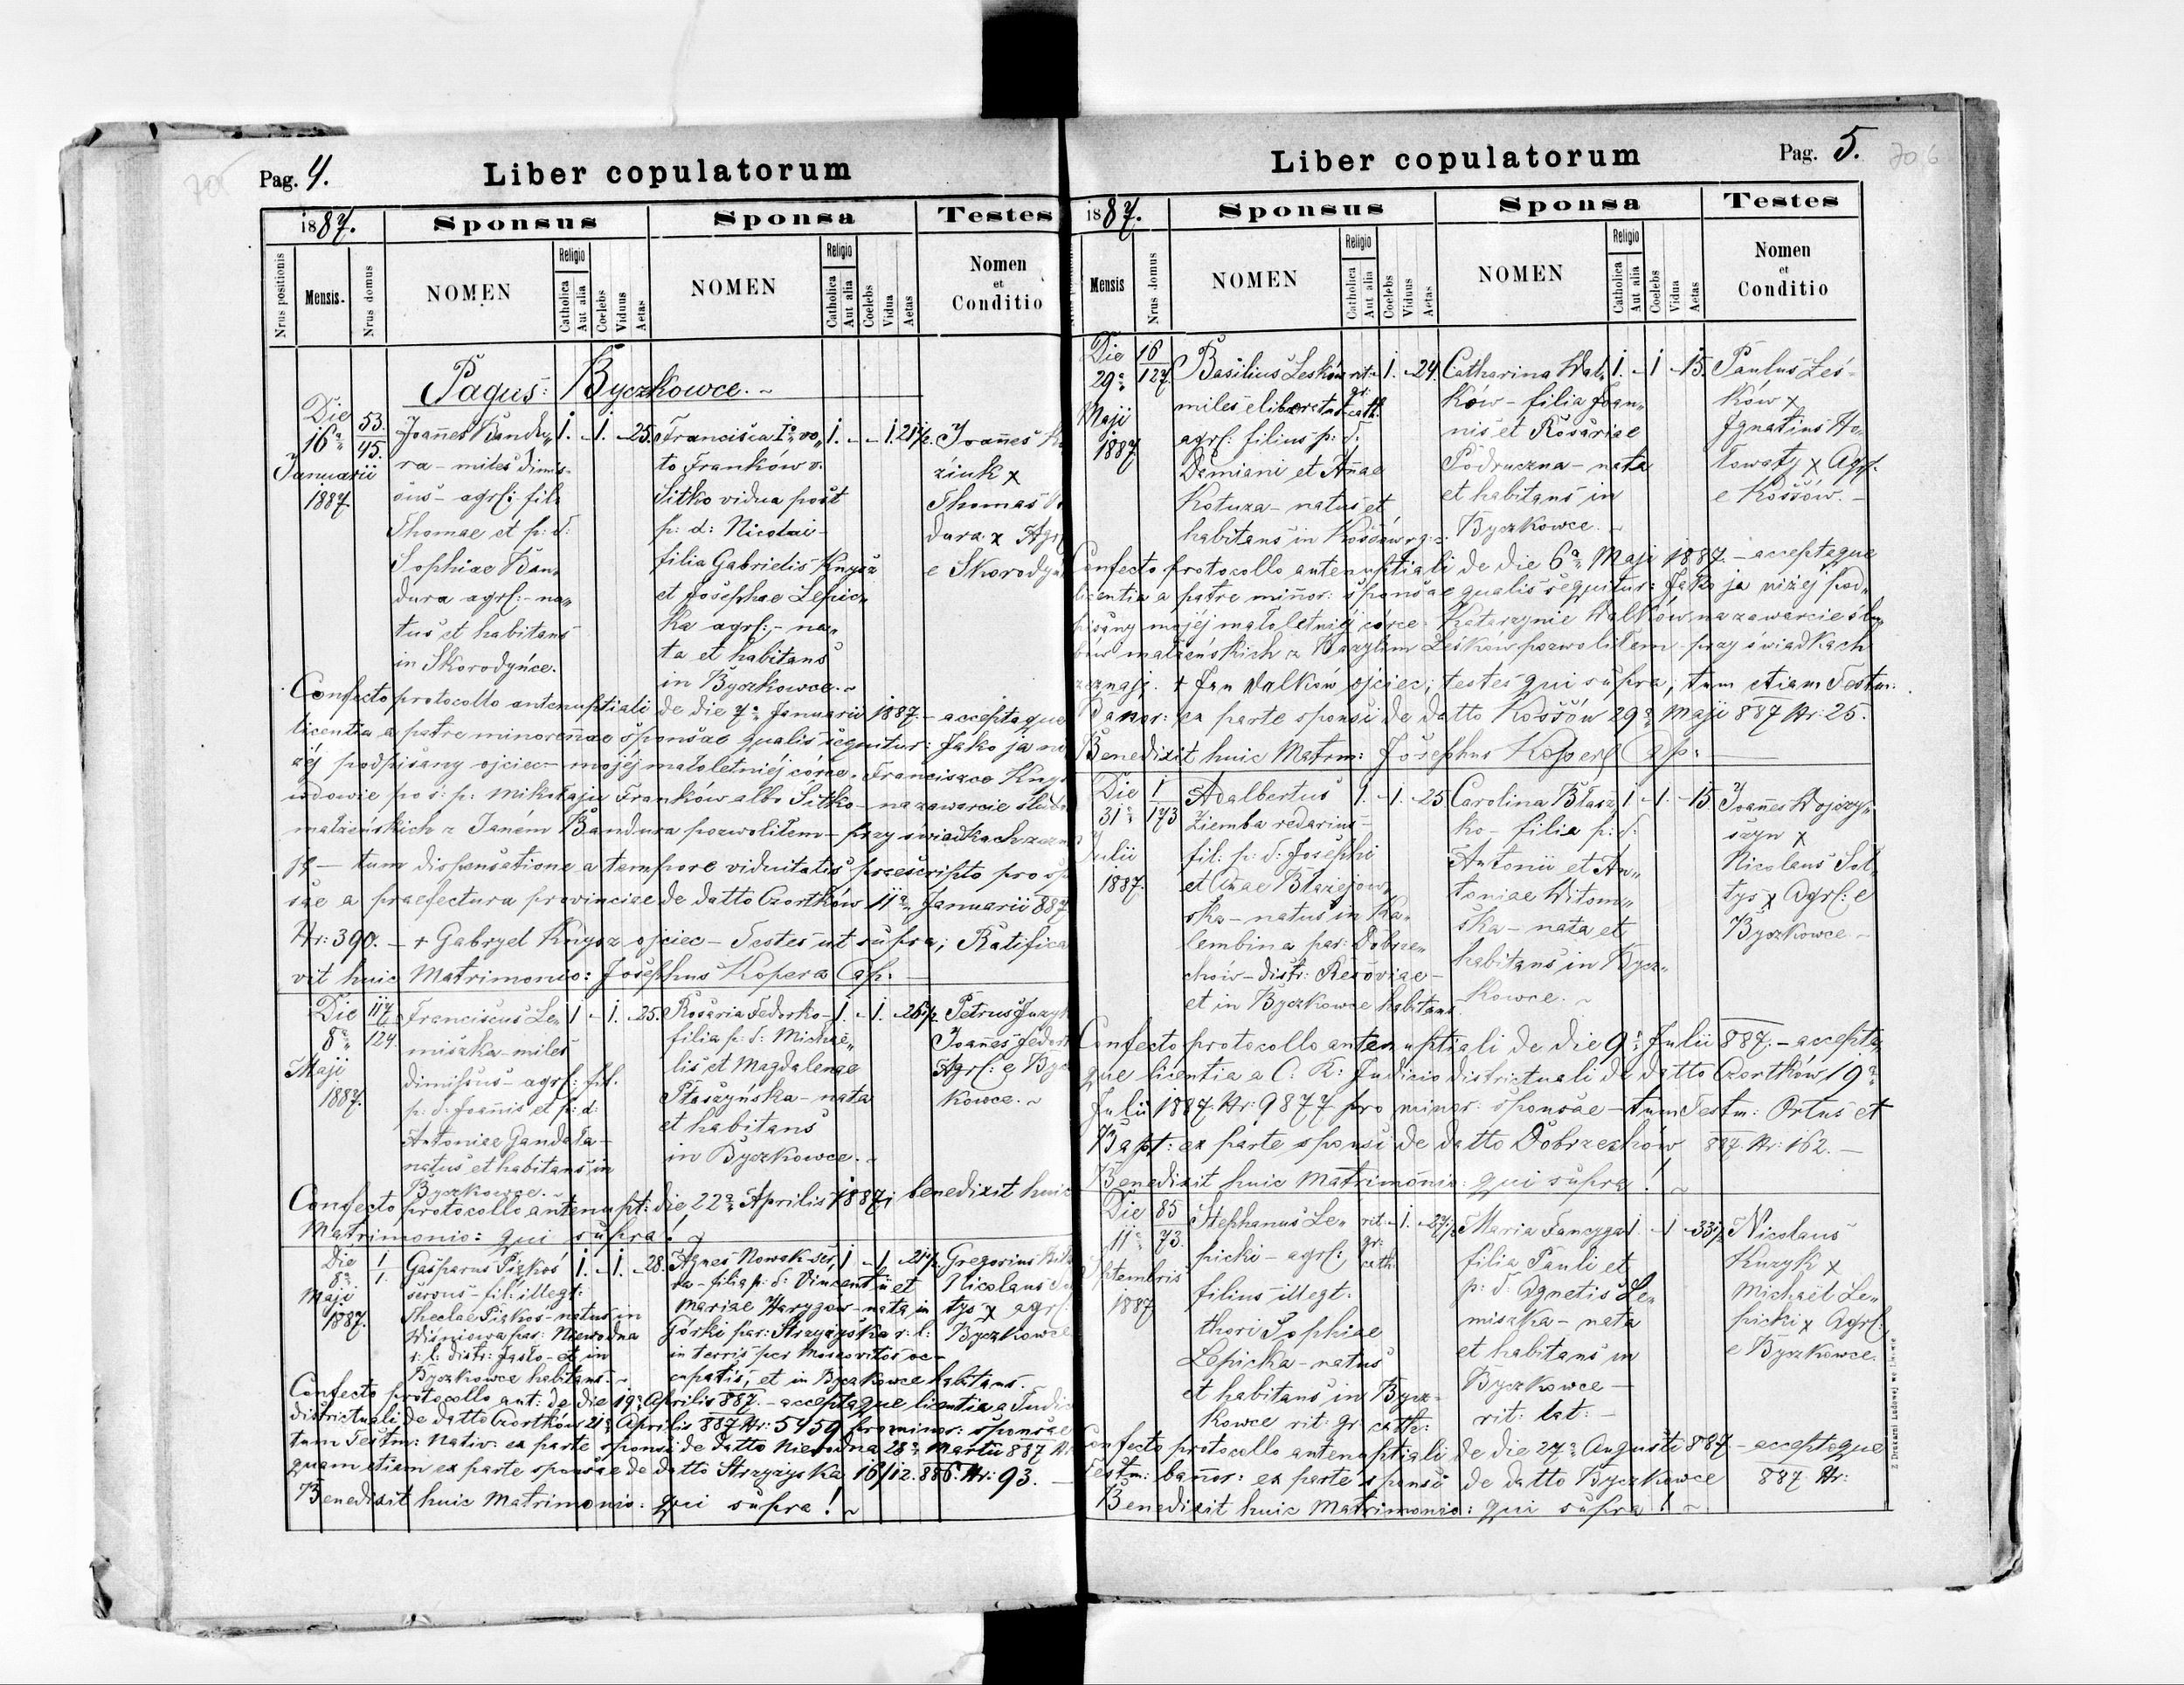 Pag. 4.
Liber copulatorum
1887.
Sponsus
Sponsa
Testes
Nrus positionis
Mensis.
Nrus domus
NOMEN
Religio
Catholica
Aut alia
Coelebs
Viduus
Aetas
NOMEN
Religio
Catholica
Aut alia
Coelebs
Vidua
Aetas
Nomen
et
Conditio
Pagus: Byczkowce. ~
Die
16a
Januarii
1887.
53.
45.
Joañes Bandu„
ra - miles dimis-
sus - agrl: fil:
Thomae et p: d:
Sophiae Ban„
dura agrl: - na„
tus et habitans
in Skorodyńce.
1. - 1. - 25.
Francisca 1o vo„
to Franków v.
Sitko vidua post
p: d: Nicolai -
filia Gabrielis Knysz
et Josephae Lepic„
ka agrl: - na„
ta et habitans
in Byczkowce. ~
1. - - 1. 21½.
Joañes
ziuk x
Thomas
dura x Agrl
e Skorodyń
Confecto protocollo antenuptiali de die 7a Januarii 1887. - acceptaque
licentia a patre minoreñae sponsae qualis sequitur: Jako ja ni
żéj podpisany ojciec - mojéj małoletniéj córce - Franciszce Knysz
wdowie po ś: p: Mikołaju Franków albo Sitko - na zawarcie ślub
małżeńskich z Janém Bandura pozwoliłem - przy świadkach zezna
ję - tum dispensatione a tempore viduitatis praescripto pro spo
sae a praefectura provinciae de datto Czortków 11a Januarii 887
Nr: 390. - + Gabryel Knysz ojciec - Testes ut supra; Ratifica
vit huic Matrimonio: Josephus Kopera Cap: -
Die
8a
Maji
1887.
117.
124.
Franciscus Le„
miszka - miles
dimissus - agrl: fil.
p: d: Joañis et p: d:
Antoniae Gandała -
natus et habitans in
Byczkowce. ~
1 - 1. - 25.
Rosaria Fedorko -
filia p: d: Michae„
lis et Magdalenae
Ptaszyńska - nata
et habitans
in Byczkowce. ~
1. - 1. - 26½.
Petrus Juzyk
Joañes Fedor
Agrl: e Bycz
kowce. ~
Confecto protocollo antenupt: die 22a Aprilis 1887; benedixit huic
Matrimonio: qui supra! ~
Die
8a
Maji
1887.
1
1.
Gasparus Pizkoś
servus - fil: illegt:
Theclae Pizkos - natus in
Wiśniewa par: Niewodna
r: l: distr: Jasło - et in
Byczkowce habitans. ~
1. - 1. - 28.
Agnes Nowak - ser„
va - filia p: d: Vincentii et
Mariae Harygow - nata in
Górki par: Strzyżyska r: l:
in terris per Moscovitos oc„
cupatis, et in Byczkowce habitans.
1 - 1 - 21½.
Gregorius
Nicolaus
tys x agrl:
Byczkowce
Confecto protocollo ant: de die 19a Aprilis 887. - acceptaque licentia a Judic
districtuali de datto Czortków 21a Aprilis 887 Nr: 5459 pro minor: sponsae
tum Testm: Nativ: ex parte sponsi de datto Niewodna 28a Martii 887 Nr
quam etiam ex parte sponsae de datto Strzyżyska 16/12. 886. Nr: 93. -
Benedixit huic Matrimonio: qui supra! ~
Pag. 5.
Liber copulatorum
1887.
Sponsus
Sponsa
Testes
Mensis
Nrus domus
NOMEN
Religio
Catholica
Aut alia
Coelebs
Viduus
Aetas
NOMEN
Religio
Catholica
Aut alia
Coelebs
Vidua
Aetas
Nomen
et
Conditio
Die
29a
Maji
1887.
16
127.
Basilius Leśków
miles eliberatus
agrl: filius p: d:
Demiani et Añae
Kotuza - natus et
habitans in Kossów r: g: -
rit: gr: cath.
- 1. - 24.
Catharina Wal„
ków - filia Joan„
nis et Rosariae
Podruczna - nata
et habitans in
Byczkowce. ~
1. - 1 - 15.
Paulus Leś-
ków x
Ignatius Ho„
łowaty x Agrl.
e Kossów. -
Confecto protocollo antenuptiali de die 6a Maji 1887. - acceptaque
licentia a patre miñor: sponsae qualis sequitur: Jako ja niżéj pod„
pisany mojéj małoletniéj córce - Katarzynie Walków na zawarcie ślu„
bów małżeńskich z Bazylim Leśków pozwoliłem - przy świadkach
zeznaję. + Jan Walków ojciec; testes qui supra; tum etiam Testm:
Banor: ex parte sponsi de datto Kossów 29a Maji 887 Nr: 25.
Benedixit huic Matrm: Josephus Kopera Cap: -
Die
31a
Julii
1887.
1
173
Adalbertus
Ziemba redarius -
fil: p: d: Josephi
et Añae Błażejow„
ska - natus in Ka„
lembina par: Dobrze„
chów - distr: Resoviae -
et in Byczkowce habitans.
1. - 1. - 25
Carolina Błasz„
ko - filia p: d:
Antonii et An„
toniae Witom„
ska - nata et
habitans in Bycz„
kowce. ~
1 - 1. - 15.
Joañes Wojczy„
szyn x
Nicolaus Soł„
tys x Agrl: e
Byczkowce -
Confecto protocollo antenuptiali de die 9a Julii 887. - accepta„
que licentia a C: K: Judicio districtuali de datto Czortków 19a
Julii 1887. Nr: 9877 pro minor: sponsae - tum Testm: Ortus et
Bapt: ex parte sponsi de datto Dobrzechów 887. Nr: 162. -
Benedixit huic Matrimonio: qui supra! ~
Die
11a
Septembris
1887
85
73.
Stephanus Le„
picki - agrl:
filius illegt.
thori Sophiae
Lepicka - natus
et habitans in Bycz-
kowce rit: gr: cath:
rit: gr: cath.
- 1. - 27½
Maria Fanczyga
filia Pauli et
p: d: Agnetis Le„
miszka - nata
et habitans in
Byczkowce -
rit: lat: -
1. - 1 - 33½
Nicolaus
Kuzyk x
Michaël Le„
picki x Agrl:
e Byczkowce.
Confecto protocollo antenuptiali de die 27a Augusti 887. - acceptaque
Testm: bañor: ex parte sponsi de datto Byczkowce 887 Nr:
Benedixit huic Matrimonio: qui supra! ~
Z Drukarni Ludowej we Lwowie